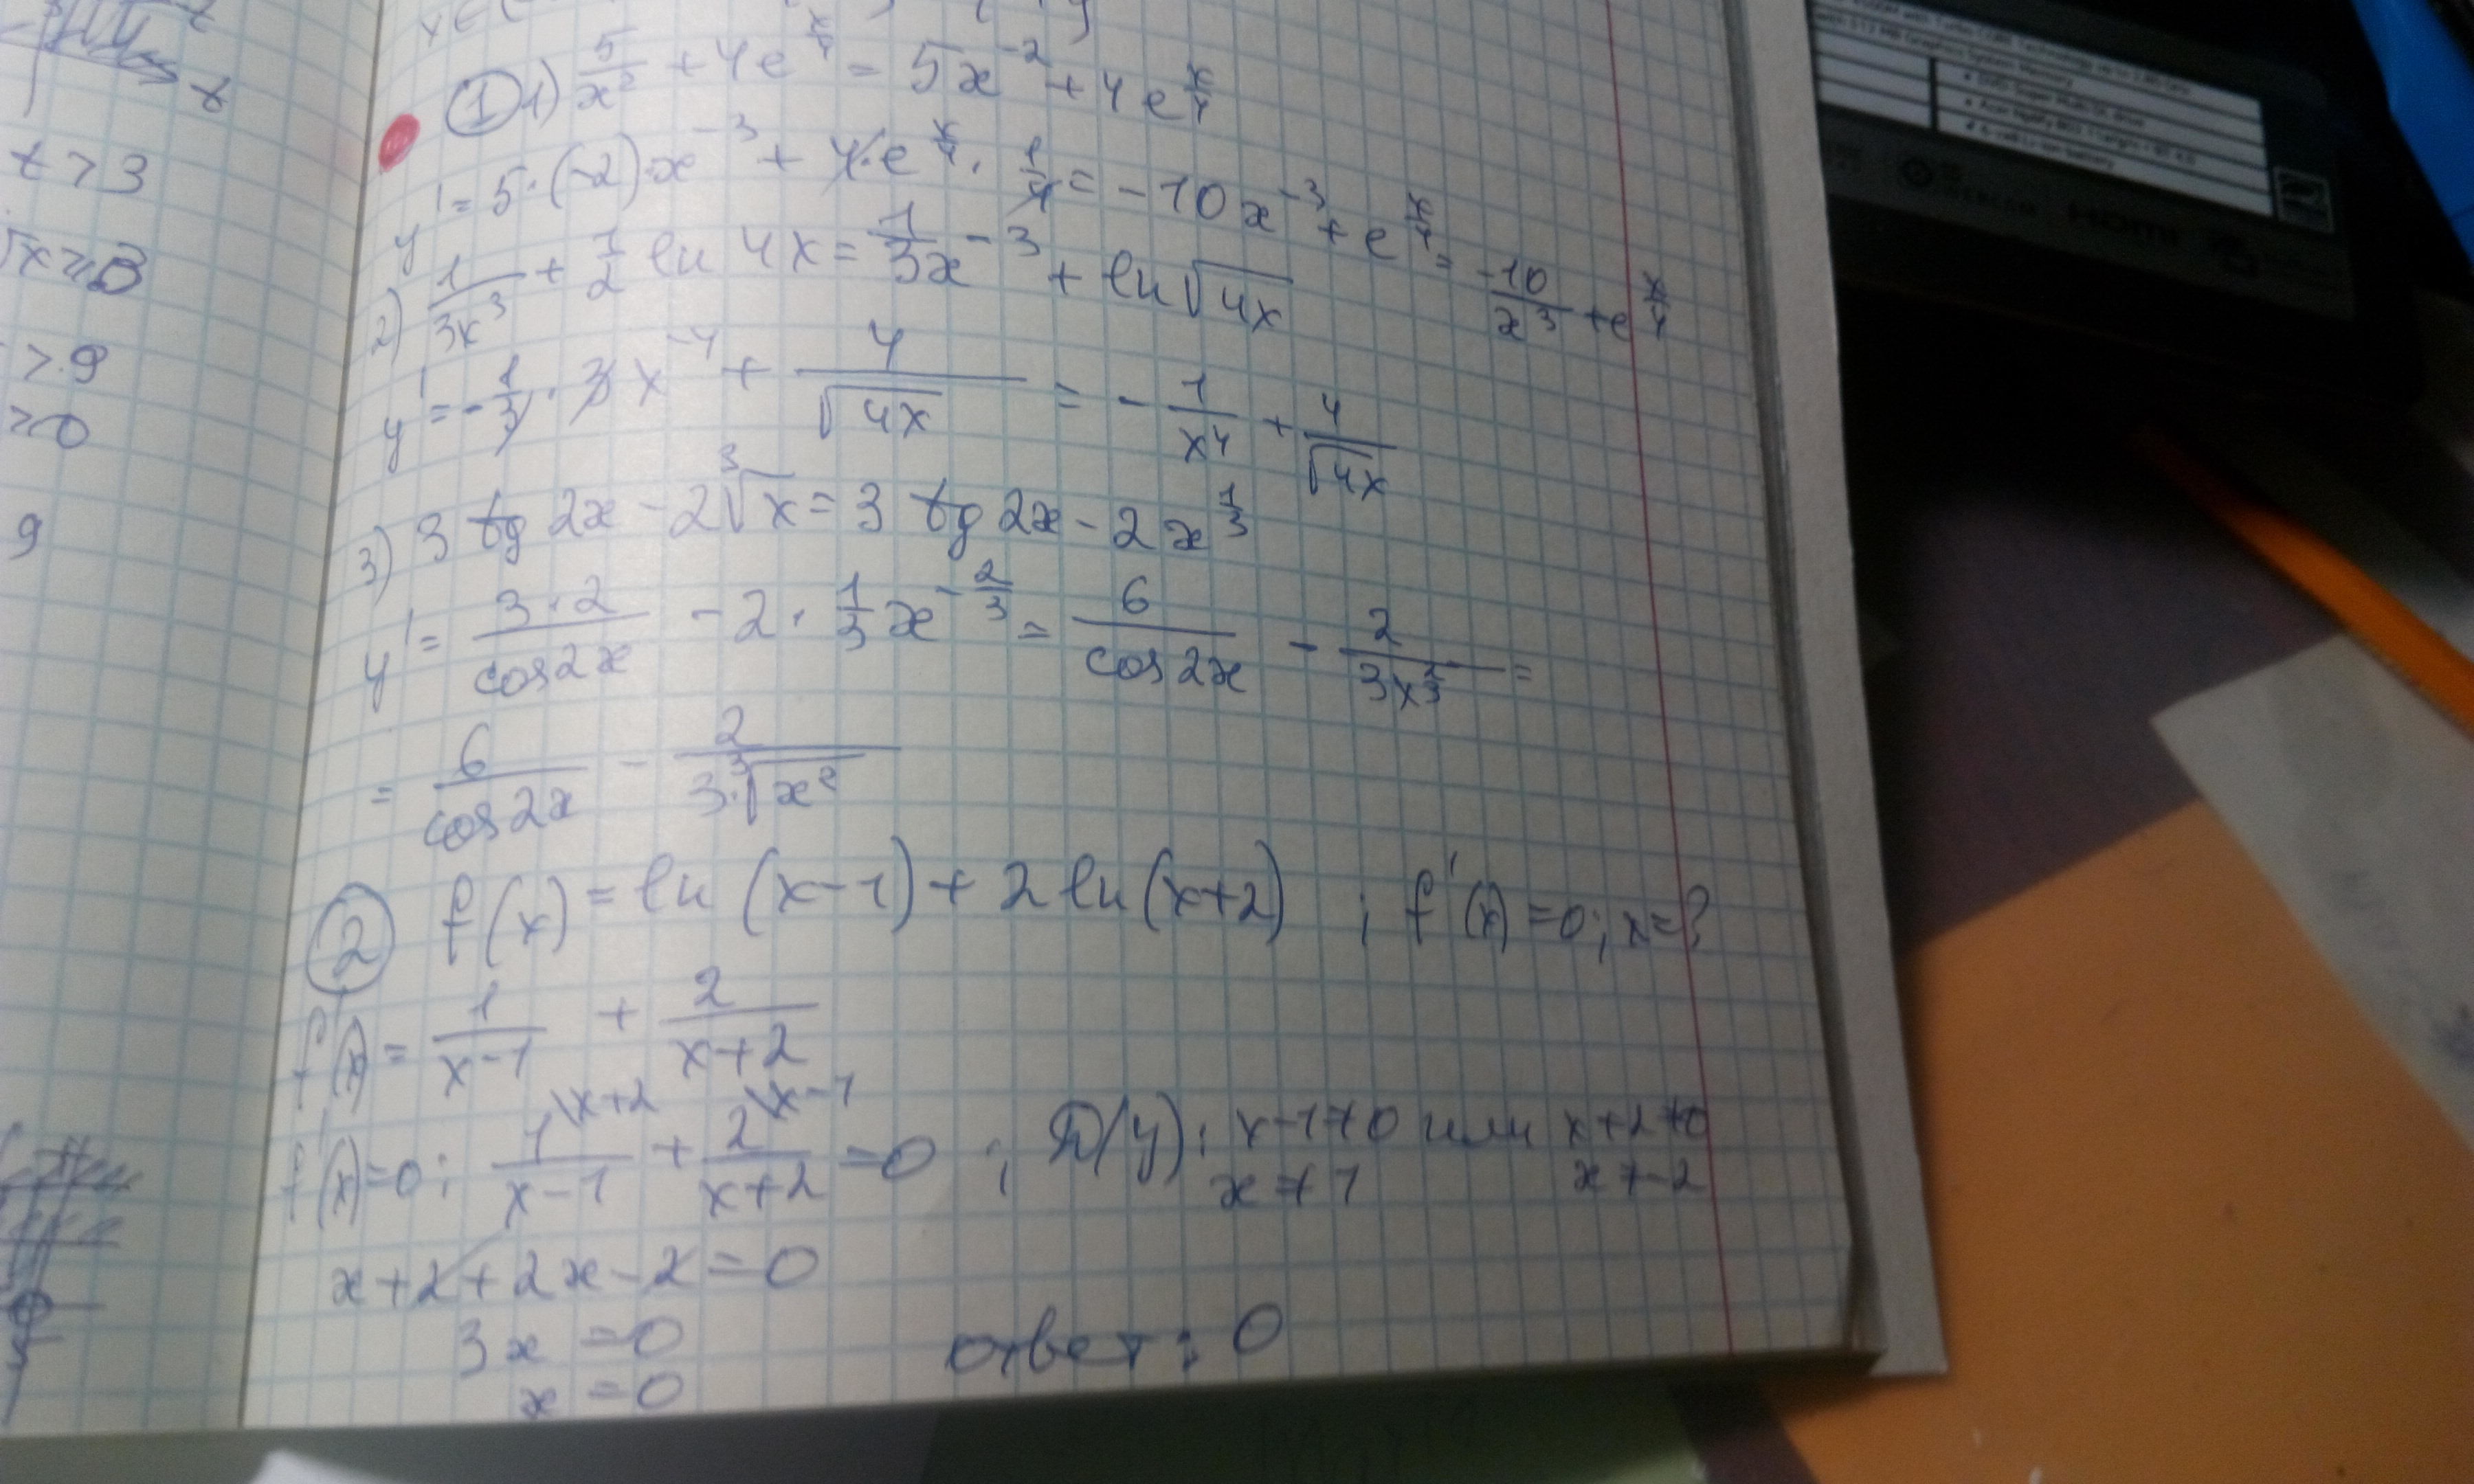 t > 3
> 9
≥ 0
9
① 1) 5/x² + 4e^(x/4) = 5x⁻² + 4e^(x/4)
y' = 5·(-2)·x⁻³ + 4·e^(x/4) · 1/4 = -10x⁻³ + e^(x/4) = -10/x³ + e^(x/4)
2) 1/(3x³) + 1/2 ln 4x = 1/3 x⁻³ + ln √(4x)
y' = -1/3 · 3x⁻⁴ + 4/√(4x) = -1/x⁴ + 4/√(4x)
3) 3 tg 2x - 2∛x = 3 tg 2x - 2x^(1/3)
y' = (3·2)/(cos 2x) - 2 · 1/3 x^(-2/3) = 6/(cos 2x) - 2/(3x^(2/3)) =
= 6/(cos 2x) - 2/(3·∛(x²))
② f(x) = ln (x-1) + 2 ln (x+2) ; f'(x) = 0; x = ?
f'(x) = 1/(x-1) + 2/(x+2)
f'(x) = 0; 1\x+2/(x-1) + 2\x-1/(x+2) = 0 ; D(y): x-1≠0 или x+2≠0
x ≠ 1 x ≠ -2
x + 2 + 2x - 2 = 0
3x = 0
x = 0 ответ: 0
HDMI